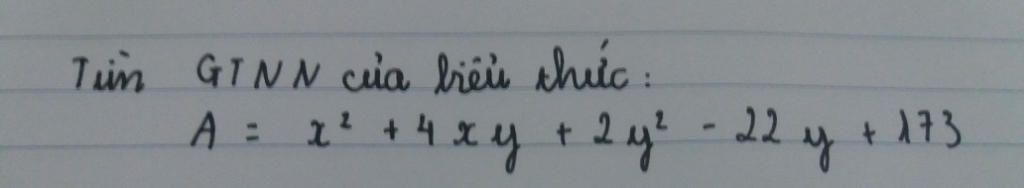 Tìm GTNN của biểu thức:
A = x² + 4xy + 2y² - 22y + 173